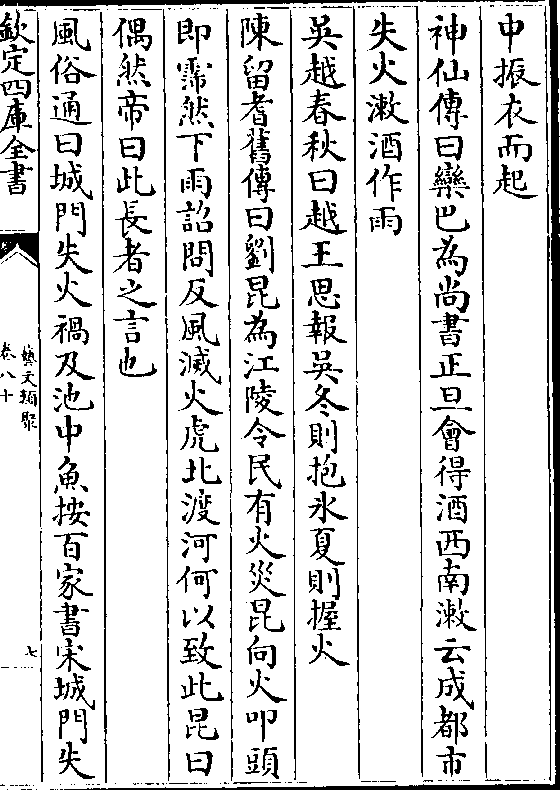 中振衣而起
神仙傳曰欒巴為尚書正旦會得酒西南漱云成都市
失火漱酒作雨
吳越春秋曰越王思報吳冬則抱氷夏則握火
陳留耆舊傳曰劉昆為江陵令民有火災昆向火叩頭
即霈然下雨詔問反風滅火虎北渡河何以致此昆曰
偶然帝曰此長者之言也
風俗通曰城門失火禍及池中魚按百家書宋城門失
欽定四庫全書
藝文類聚
卷八十
七